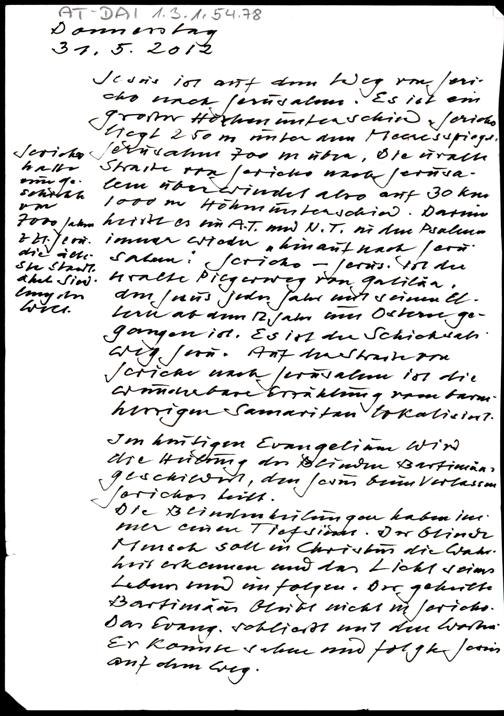 AT-DAI 1.3.1.54.78
Donnerstag
31. 5. 2012
Jesus ist auf dem Weg von Jeri-
cho nach Jerusalem. Es ist ein
großer Höhenunterschied. Jericho
liegt 250 m unter dem Meeresspiegel
Jerusalem 700 m über. Die uralte
Straße von Jericho nach Jerusa-
lem überwindet also auf 30 km
1000 m Höhenunterschied. Darum
heißt es im A.T. und N.T. in den Psalmen
immer wieder „hinauf nach Jeru-
salem". Jericho – Jerus. ist der
uralte Pilgerweg von Galiläa,
den Jesus jedes Jahr mit seinen El-
tern ab dem 12. Jahr zum Ostern ge-
gangen ist. Es ist der Schicksals
weg Jesu. Auf der Straße von
Jericho nach Jerusalem ist die
wunderbare Erzählung vom barm-
herzigen Samaritan lokalisiert.
Jericho
hatte
eine ge-
schichte
von
7000 Jahren
z. Zt. Jesu.
die älte-
ste Stadt-
ähnl. Sied-
lung der
Welt.
Im heutigen Evangelium wird
die Heilung des Blinden Bartimäus
geschildert, den Jesus beim Verlassen
Jerichos heilt.
Die Blindenheilungen haben im-
mer einen Tiefsinn. Der blinde
Mensch soll in Christus die Wahr-
heit erkennen und das Licht seines
Lebens und ihm folgen. Der geheilte
Bartimäus bleibt nicht in Jericho.
Das Evang. schließt mit den Worten
Er konnte sehen und folgte Jesus
auf dem Weg.